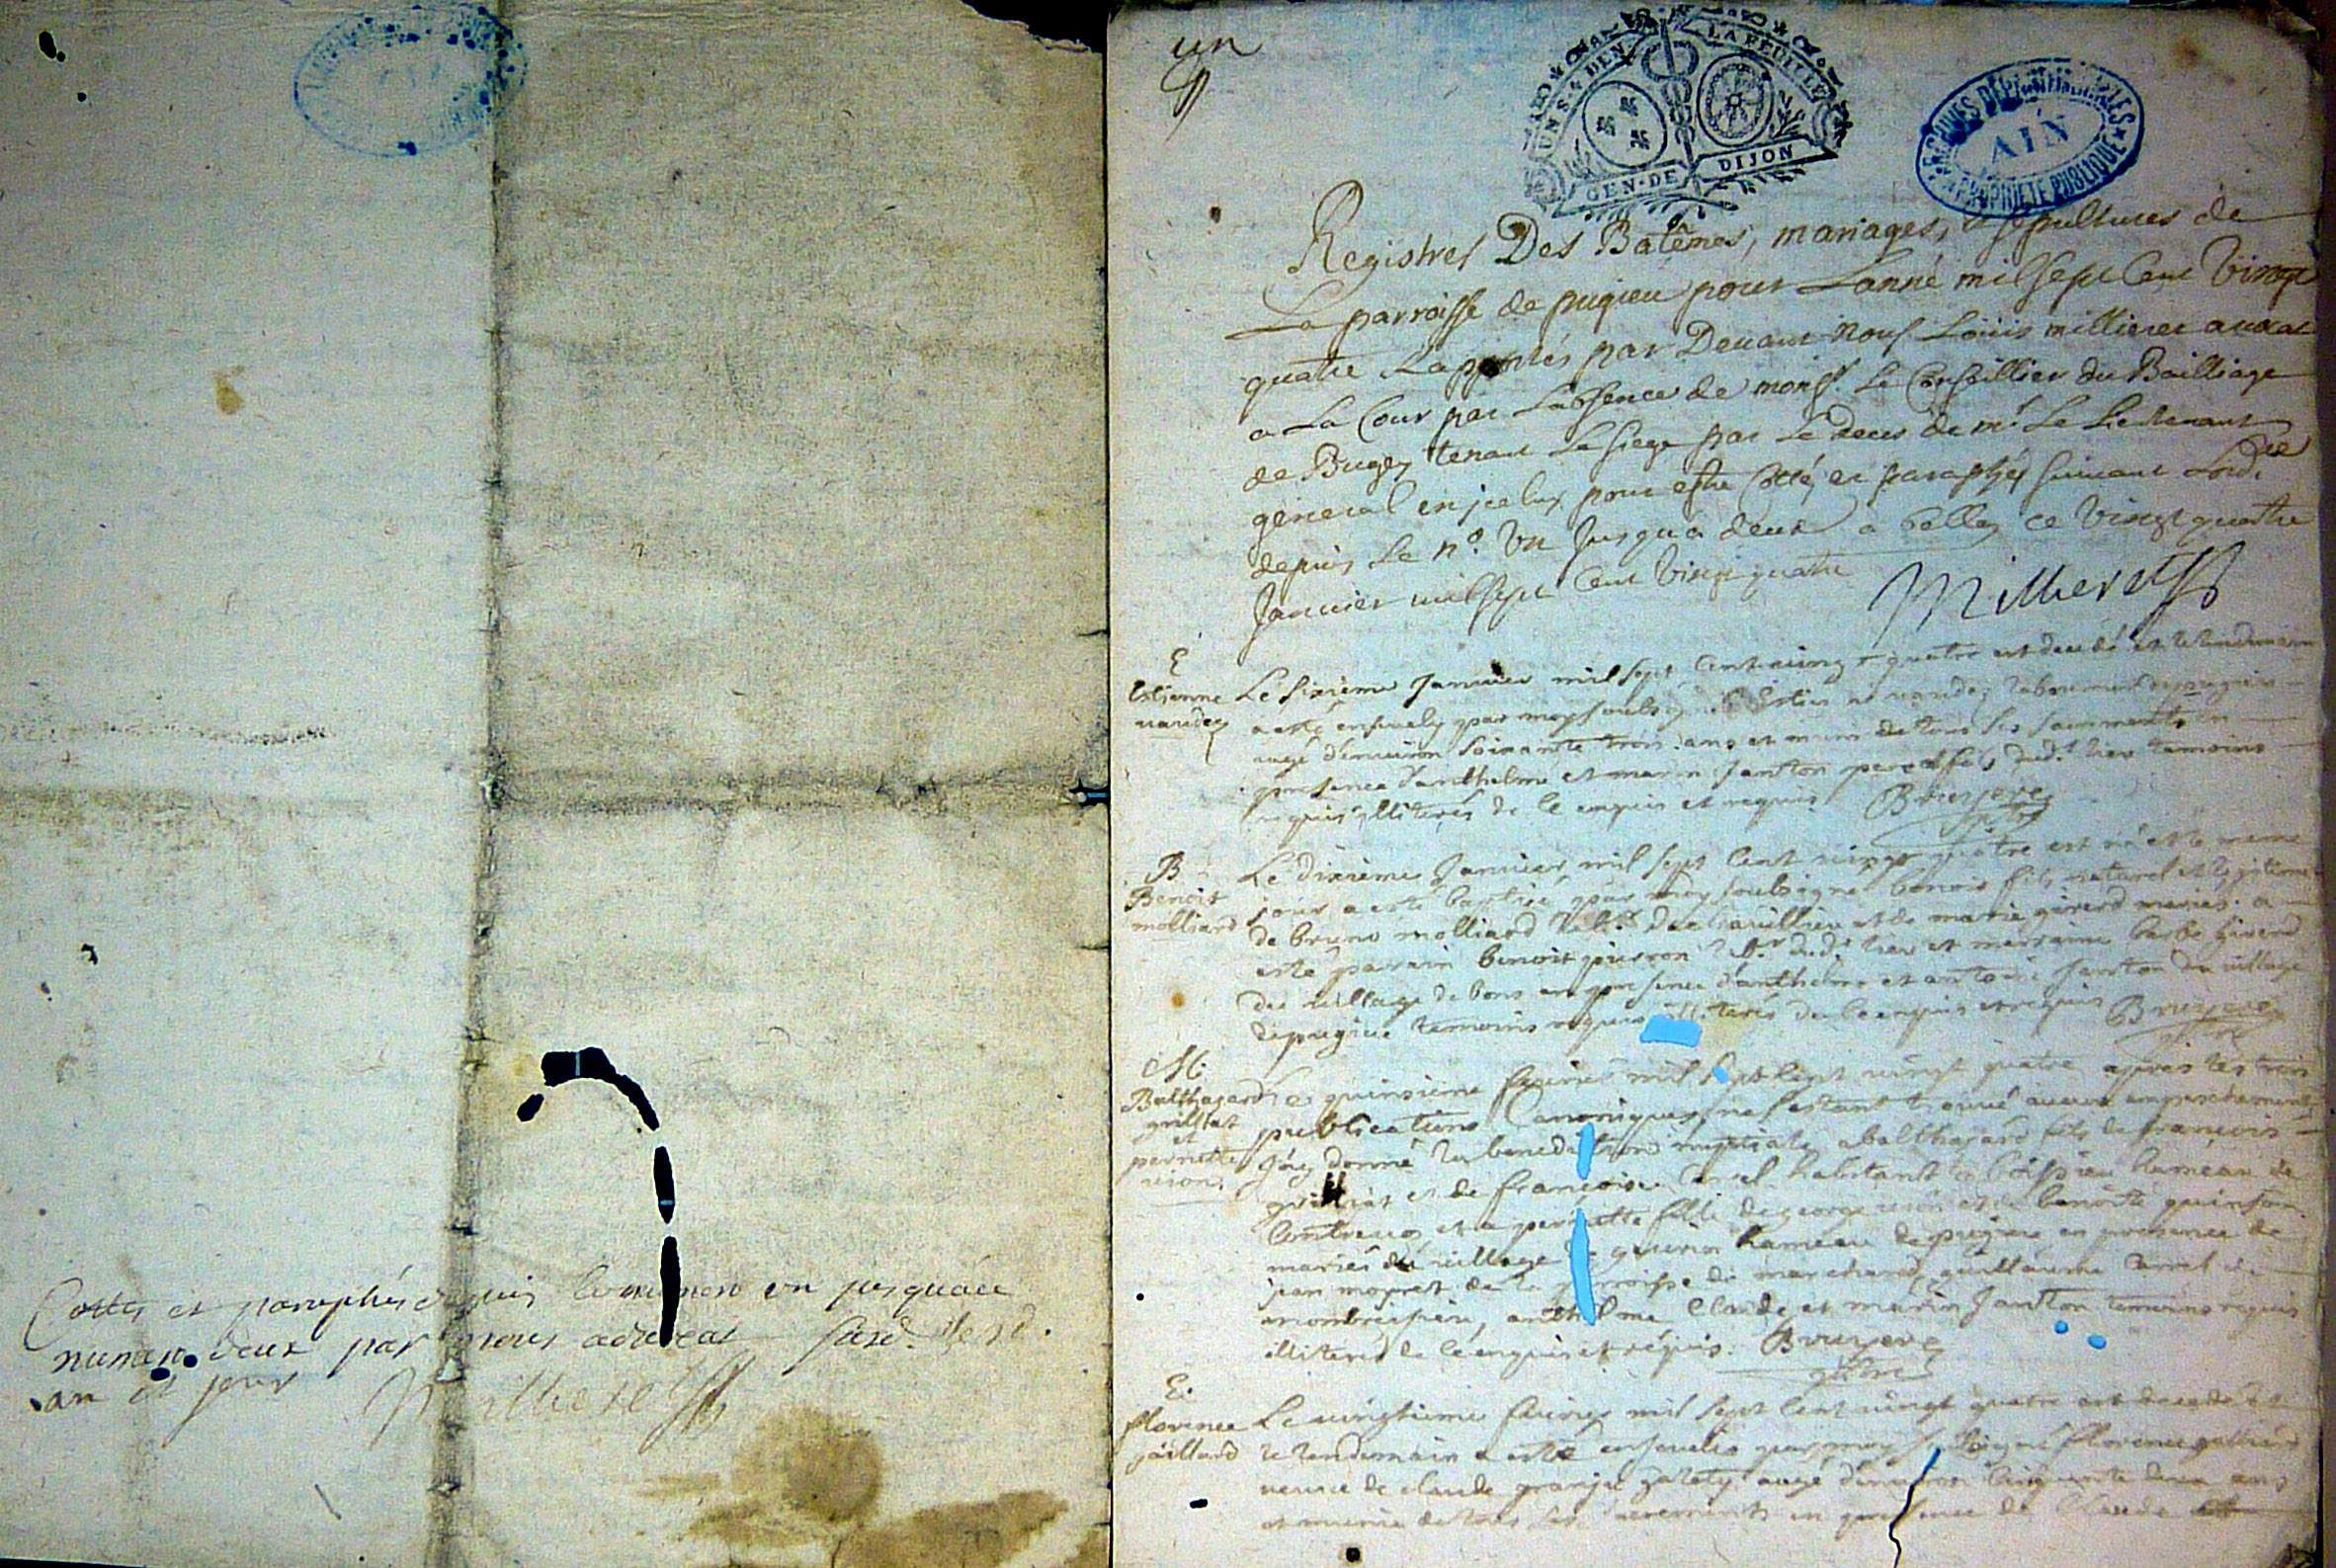 Cottés et paraphés depuis le numero un jusquau
numero deux par nous advocat susd. les d.
an et jour Millieret
un
UN S. 4 DEN. LA FEUILLE
GEN. DE DIJON
ARCHIVES DEPARTEMENTALES
AIN
PROPRIETE PUBLIQUE
Registres Des Batêmes, mariages, et sepultures de
La parroisse de pugieu pour Lanné mil sept Cent Vingt
quatre par Devant Nous Loüis millieret avocat
a La Cour par Labsence de monsr. Le Conseillier du Bailliage
de Bugey tenant Le siege par Le deces de mr. Le Lieutenant
general en jceluy pour estre Cotté, et paraphés suivant Lordce
depuis Le no. Un Jusqu'a deux a belley ce Vingt quatre
Janvier mil sept Cent Vingt quatre Millieret
E
Estienne
vandez
Le sixieme Janvier mil sept Cent vingt quatre est decedé et le lendemain
a esté ensevely par moy soubsigné Estienne vandez laboureur de pugieu
aagé d'environ soixante trois ans et muni de tous les sacrements en
presence d'anthelme et marin Janton pere et fils dud. lieu temoins
requis illiterés de ce enquis et requis Bruyere
ptre
B
Benoit
molliard
Le dixieme Janvier mil sept Cent vingt quatre est né et le meme
jour a esté baptisé par moy soubsigné benoit fils naturel et legitime
de bruno molliard et de marie girerd mariés. a
esté parrain benoit dud. lieu et marraine barbe girerd
du village de bons en presence d'anthelme et antoine Janton du village
de pugieu temoins requis illiterés de ce enquis et requis Bruyere
ptre
M.
Balthazard
grilliat
et
pernette
uion.
Le quinsieme fevrier mil sept Cent vingt quatre apres les trois
publications Canoniques ne s'estant trouvé aucun empeschement
j'ay donné la benediction nuptiale a balthazard fils de francois
grilliat et de francoise Carrel habitant a hameau de
Contrevoz et a pernette fille de george uion et de benoite quinson
mariés du village de hameau de pugieu en presence de
jean de la parroisse de marchand, guillaume Carrel de
anthelme Claude et marin Janton temoins requis
illiterés de ce enquis et requis. Bruyere
ptre
E.
florence
gaillard
Le vingtieme fevrier mil sept Cent vingt quatre est decedé et
le lendemain a esté ensevelie par moy soubsigné florence gaillard
veuve de claude aagé d'environ Cinquante deux ans
et munie de tous les sacrements en presence de Claude